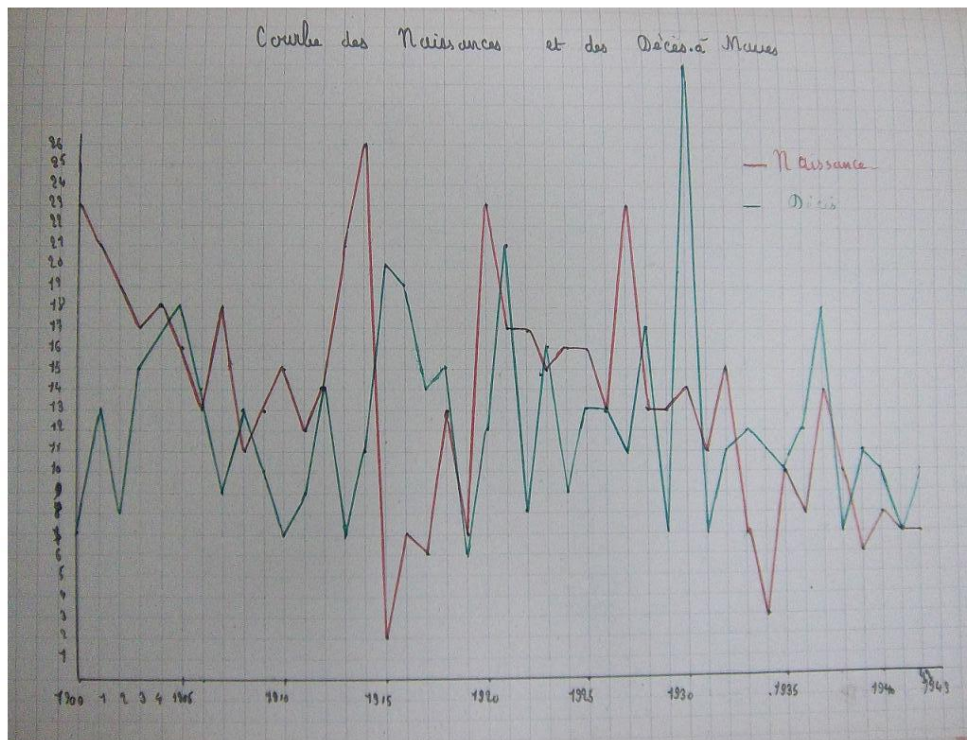 Courbe des Naissances et des Décès à Maves
Naissance
Décès
26
25
24
23
22
21
20
19
18
17
16
15
14
13
12
11
10
9
8
7
6
5
4
3
2
1
1900 1 2 3 4 1905 1910 1915 1920 1925 1930 1935 1940 1943